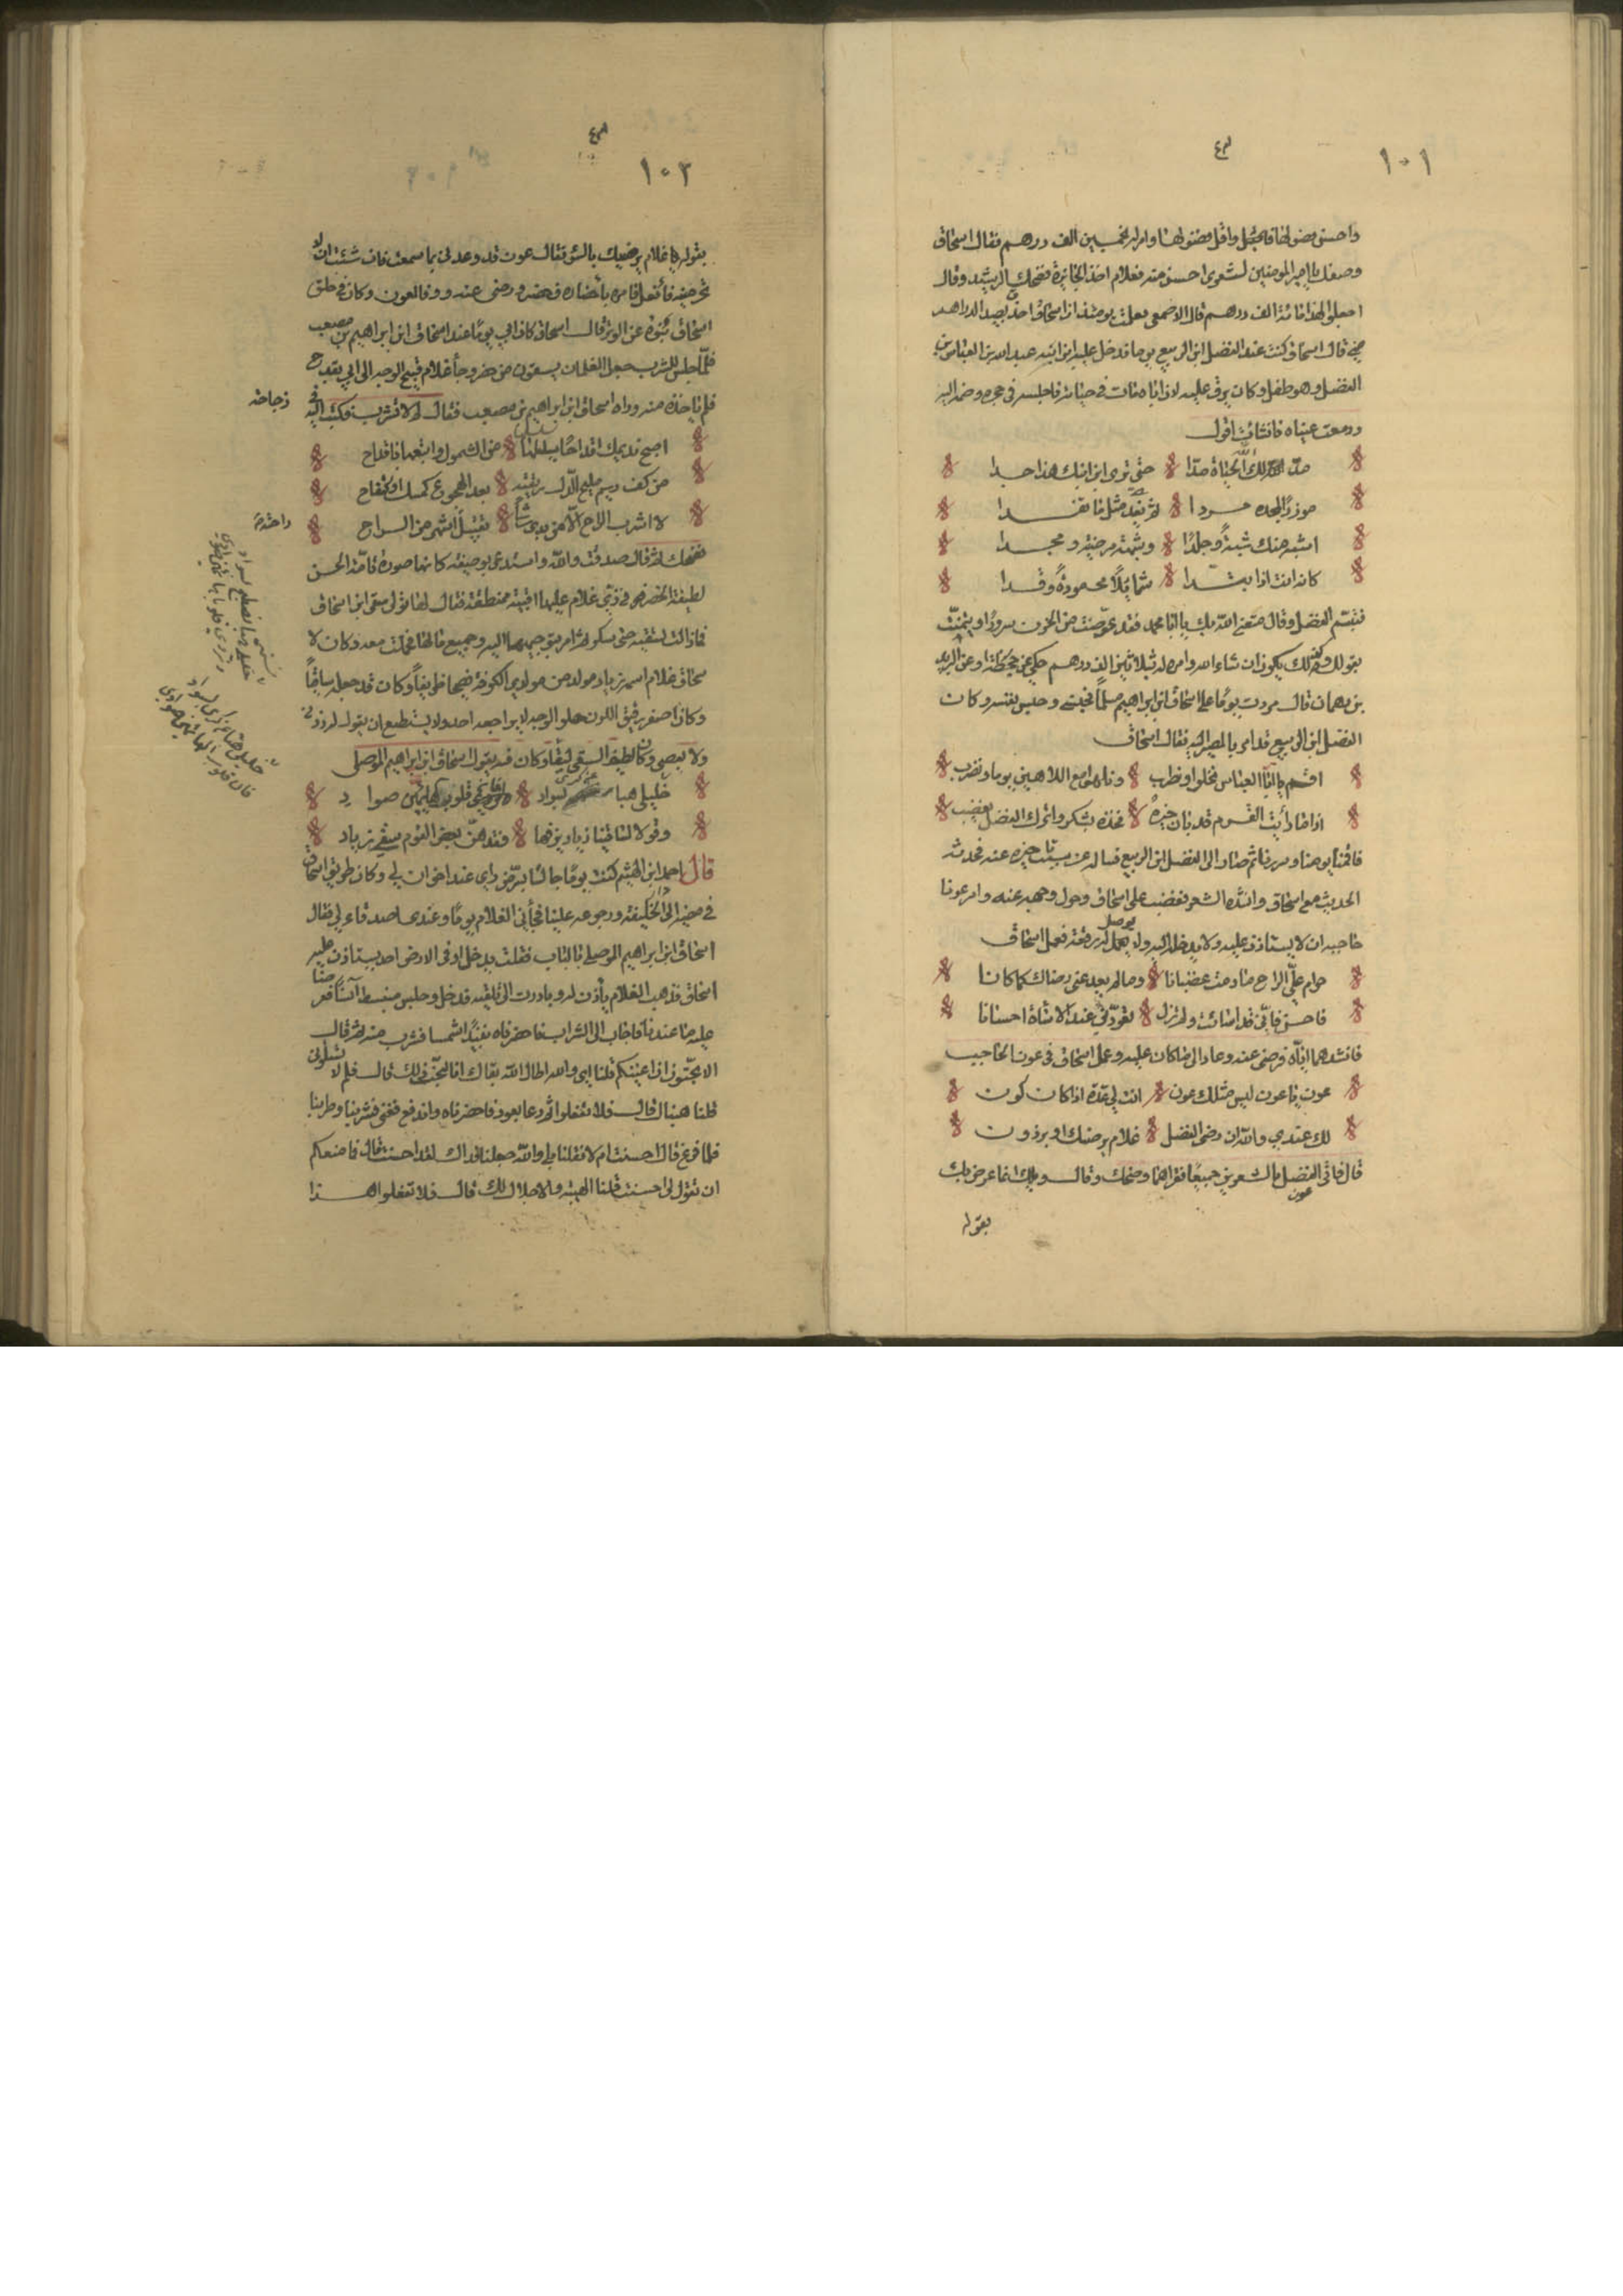 ١٠١
واحسن فصولها واقل فضولها وامر له بخمسين الف درهم فقال اسحاق
وصفك يا امير المومنين لشعري احسن منه فعلام اخذ الجائزة فضحك الرشيد وقال
اجعلوا لهذا مائة الف درهم قال الاصمعي فعلمت يومئذ ان اسحاق احذق بصيد الدراهم
مني قال اسحاق كنت عند الفضل ابن الربيع يوما فدخل عليه ابن ابنه عبد الله بن العباس بن
الفضل وهو طفل وكان يرق عليه لان اباه مات في حياته فاجلسه في حجره وضمه اليه
ودمعت عيناه فانشات اقول
مدّ لك الله الحياة مدّا حتى ترى ابن ابنك هذا جدا
موزرًا بمجده مردا ثم يفدى مثل ما تفدا
اشبه منك شبهةً وجلدًا وشيمة مرضية ومجدا
كانه انت اذا تبدّا شمايلًا محمودةً وقدا
فتبسّم الفضل وقال متعني الله بك يا ابا محمد فقد عوّضت من الحزن سرورًا وتيمنت
بقولك وكذلك يكون ان شاء الله وامر له بثلاثين الف درهم حكي عن جحظة او عن الزبير
بن دهمان قال مررت يومًا على اسحاق ابن ابراهيم مسلمًا فحبسني وحبس نفسه وكان
الفضل ابن الربيع قد امر بالمصير اليه فقال اسحاق
اقم يا ابا العباس نخلوا ونطرب ونلهو مع اللاهين يوما ونضرب
اذا ما رأيت القوم قد بان خيره فخذه بشكر واترك الفضل يغضب
فاقمنا يومنا وسررنا ثم صار الى الفضل ابن الربيع فساله عن سبب تاخره عنه فحدثه
الحديث مع اسحاق وانشده الشعر فغضب على اسحاق وحول وجهه عنه وامر عونا
حاجبه ان لا يستاذن عليه ولا يدخله اليه ولا يوصل له رقعة فعمل اسحاق
حرام عليّ الراح مادمت غضبانا وما لم يعد عني رضاك كما كانا
فاحسن فاني قد اسأت ولم تزل تعوّدني عند الاساءة احسانا
فانشدهما اياه فرضي عنه وعاد الى ما كان عليه وعمل اسحاق في عون الحاجب
عون يا عون ليس مثلك عون انت لي عدة اذا كان كون
لك عندي والله ان رضي الفضل غلام يرضيك او برذون
قال فاتى عون الفضل بالشعرين جميعا فقراهما وضحك وقال ويلك انما عرض بك
بقوله
١٠٢
بقوله غلام يرضيك بالسوء فقال عون قد وعدني بما سمعت فان شئت ان لا
تحرمنيه فأفعل فامره بأحضاره فحضر ورضي عنه ووفا لعون وكان في خلق
اسحاق نبوة عن الوزر قال اسحاق كان ابي يومًا عند اسحاق ابن ابراهيم بن مصعب
فلمّا جلس للشرب جعل الغلمان يسقون من حضر وجاء غلام قبيح الوجه الى ابي بقدح
فلم ياخذه منه وراه اسحاق ابن ابراهيم بن مصعب فقال له لا تشرب فكتب اليه في
زجاجة
اصبح نديمك اقداحًا يسلسلها من الشمول واتبعها باقداح
من كف ريم مليح الدّل ريقته بعد الهجوع كمسك او كتفاح
لا اشرب الراح الا من يدي رشاء تقبيل راحته اشهى من الراح
فضحك ثم قال صدقت والله واستدعى بوصيفة كانها صورة تامّة الحسن
لطيفة الخصر في زيّ غلام عليها اقبية ومنطقة فقال لها تولى سقي ابن اسحاق
فما زالت تسقيه حتى سكر ثم امر بتوجيهها اليه وجميع ما لها فحملت معه وكان لا
سحاق غلام اسمه زياد مولد من مولدي الكوفة فصيحا ظريفًا وكان قد جعله ساقيًا
وكان اصفر رقيق اللون حلو الوجه لا يواجهه احد ولا يستطيع ان يقول له زدني
ولا بعضي وكان لطيف السقي لبقًا وكان فيه يقول اسحاق ابن ابراهيم الموصلي
خليلي هبا بسواد قلوب صوادي
وقولا لساقينا زياد يرقها فقد هزّ بعض القوم سقي زياد
قال احمد ابن الهيثم كنت يومًا جالسًا بسرّ من رأى عند اخوان لي وكان طريق اسحاق
في مضيه الى دار الخليفة ورجوعه علينا فجأني الغلام يومًا وعندي اصدقاء لي فقال
اسحاق ابن ابراهيم الموصلي بالباب فقلت يدخل اوفى الارض احد يستاذن عليه
اسحاق فذهب الغلام يأذن له وبادرت الى تلقيه فدخل وجلس منبسطا آنسًا فعرضنا
عليه ما عندنا فاجاب الى الشراب فاحضرناه نبيذًا شمسا فشرب منه ثم قال
الا تحبّون ان اغنيكم قلنا اي والله اطال الله بقاك انا لنحبّ ذلك قال فلم لا تسلوني
قلنا هبناك قال فلا تفعلوا ثم دعا بعود فاحضرناه واندفع فغنى فشربنا وطربنا
فلما فرغ قال احسنت ام لا فقلنا بلى والله جعلنا فداك لقد احسنت قال فما منعكم
ان تقول لي احسنت قلنا الهيبة والاجلال لك قال فلا تفعلوا هذا